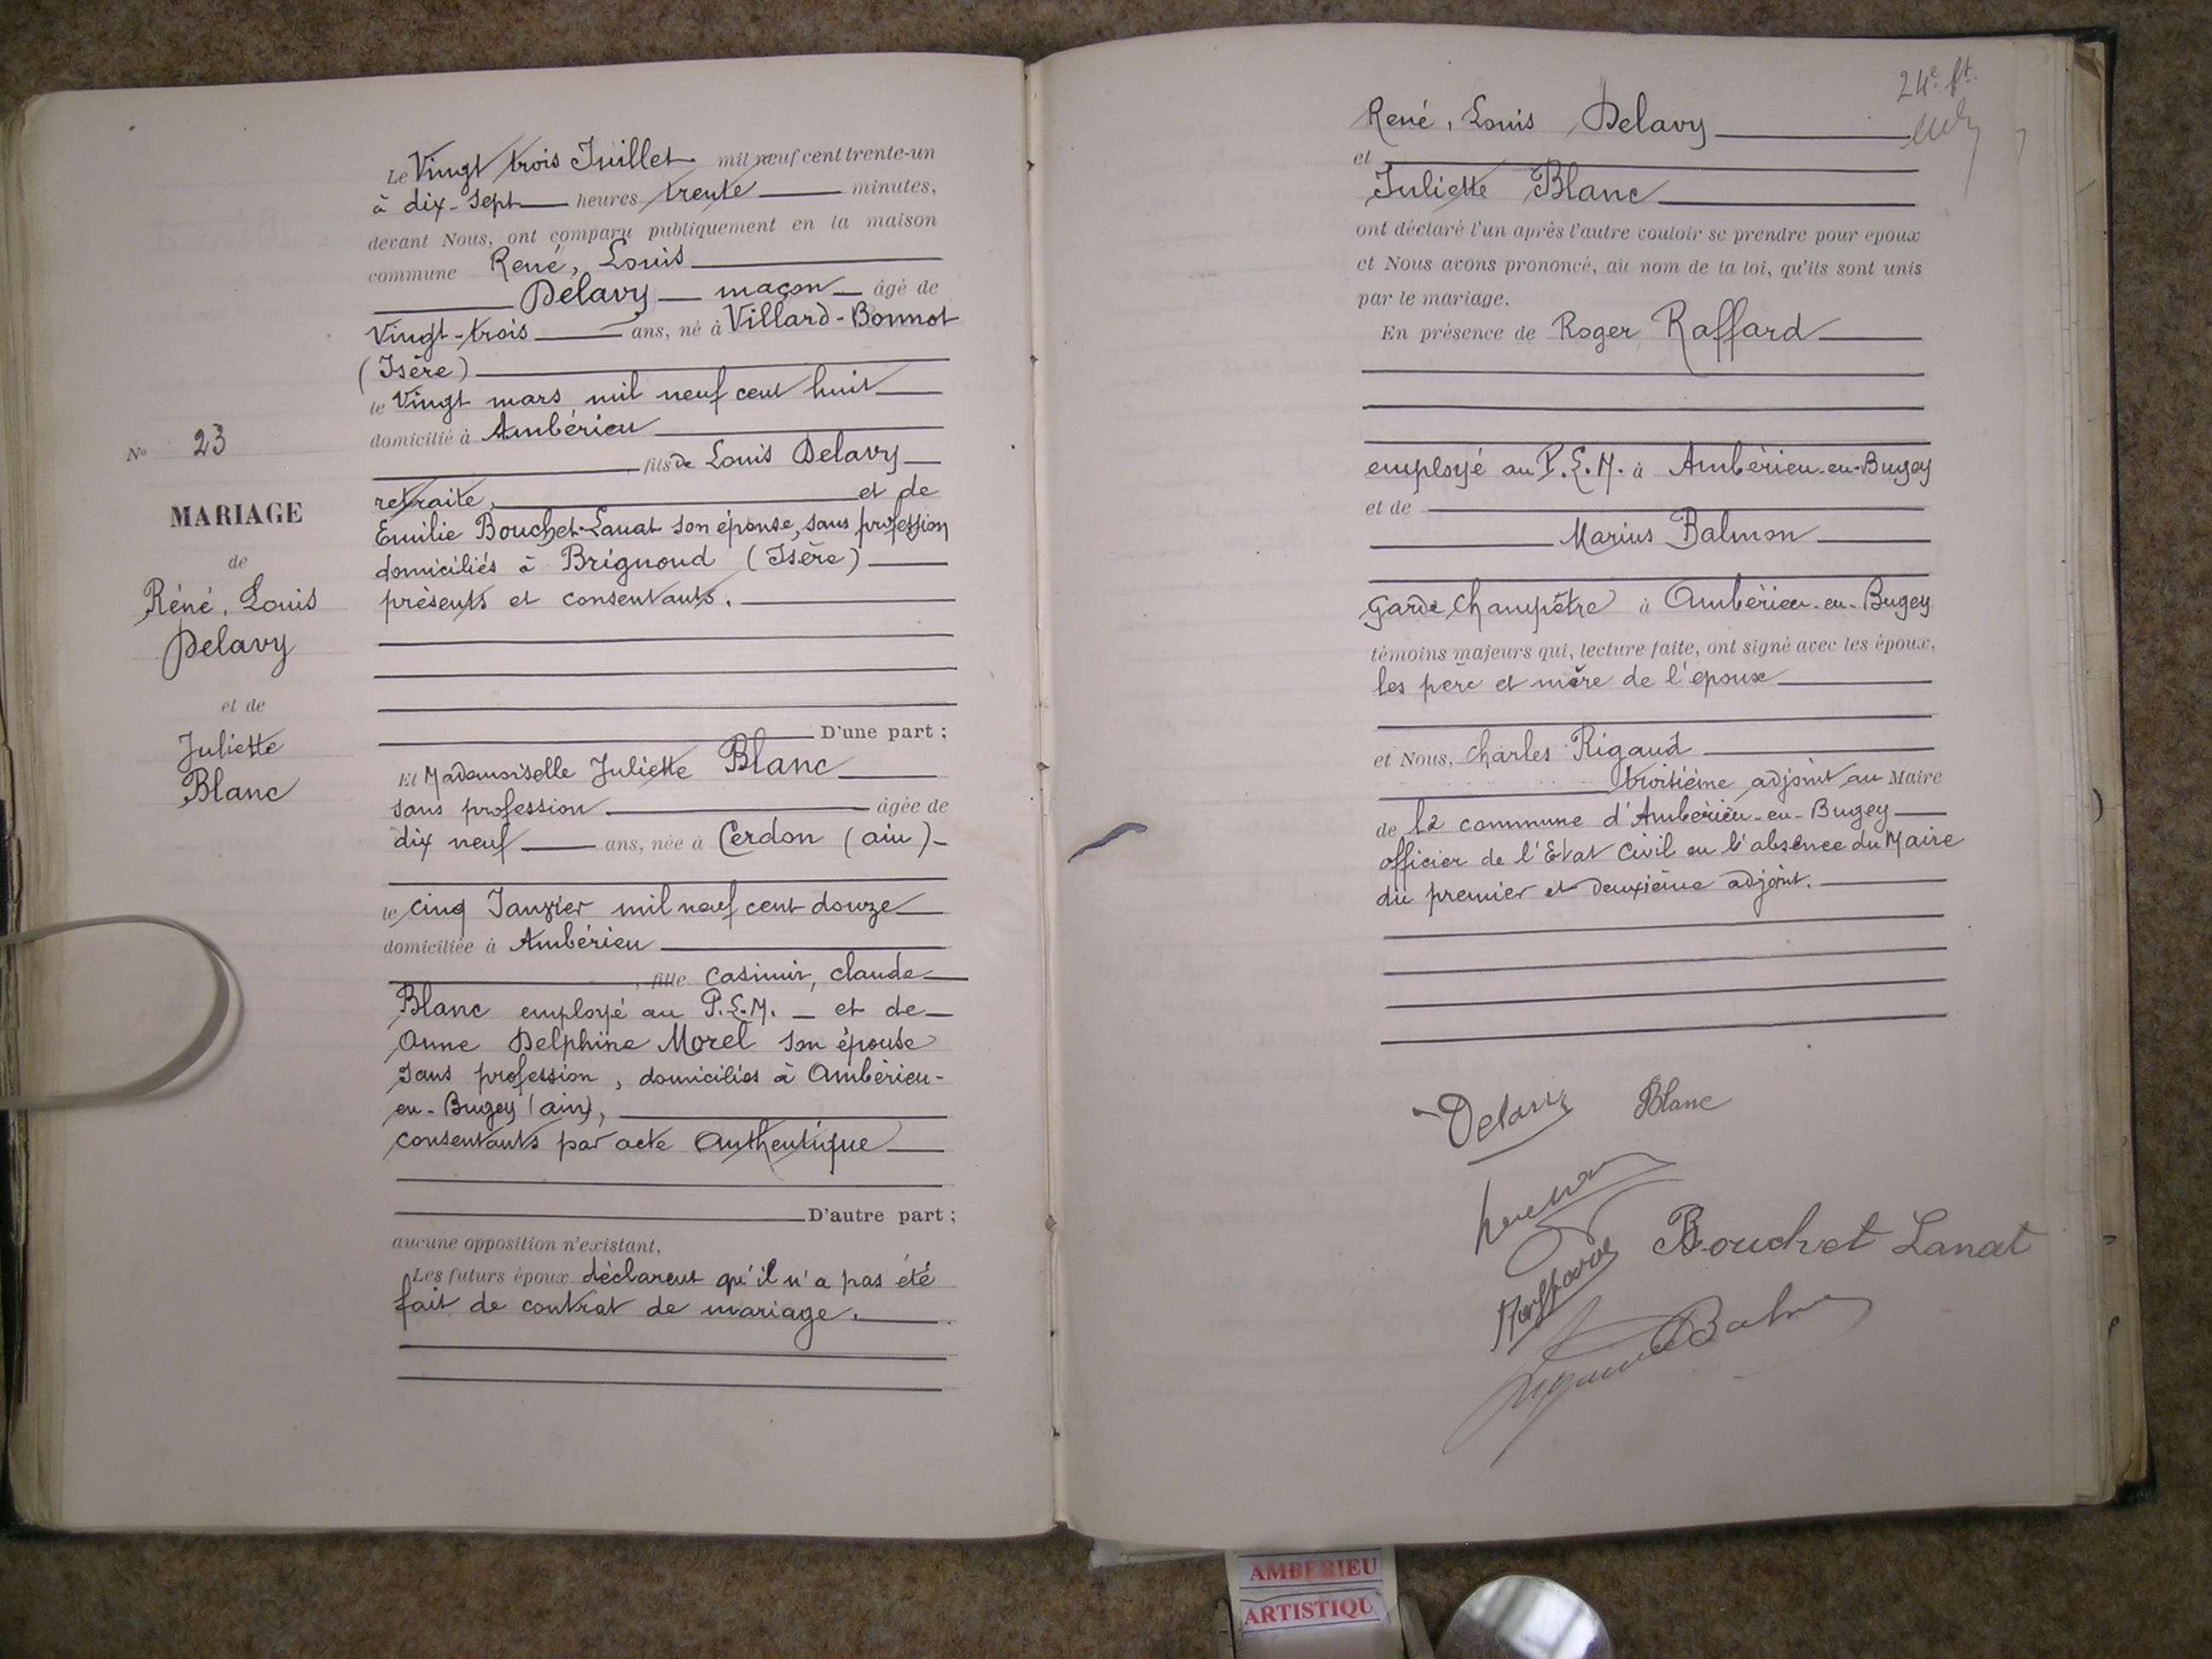 Le Vingt trois Juillet mil neuf cent trente-un
à dix-sept heures trente minutes,
devant Nous, ont comparu publiquement en la maison
commune René, Louis
Delavy maçon âgé de
Vingt-trois ans, né à Villard-Bonnot
(Isère)
le Vingt mars mil neuf cent huit
domicilié à Ambérieu
fils de Louis Delavy
retraité, et de
Emilie Bouchet-Lanat son épouse, sans profession
domiciliés à Brignoud (Isère)
présents et consentants.
D'une part ;
Et Mademoiselle Juliette Blanc
sans profession âgée de
dix neuf ans, née à Cerdon (ain)
le cinq Janvier mil neuf cent douze
domiciliée à Ambérieu
, fille Casimir, claude
Blanc employé au P.L.M. et de
Anne Delphine Morel son épouse
sans profession, domiciliés à Ambérieu-
en-Bugey (ain),
consentants par acte Authentique
D'autre part ;
aucune opposition n'existant,
Les futurs époux déclarent qu'il n'a pas été
fait de contrat de mariage.
No 23
MARIAGE
de
Réné, Louis
Delavy
et de
Juliette
Blanc
24e ft.
René, Louis Delavy
et
Juliette Blanc
ont déclaré l'un après l'autre vouloir se prendre pour epoux
et Nous avons prononcé, au nom de la loi, qu'ils sont unis
par le mariage.
En présence de Roger Raffard
employé au P.L.M. à Ambérieu-en-Bugey
et de
Marius Balmon
Garde Champêtre à Ambérieu-en-Bugey
témoins majeurs qui, lecture faite, ont signé avec les époux,
les père et mère de l'époux
et Nous, Charles Rigaud
troisième adjoint au Maire
de la commune d'Ambérieu-en-Bugey
officier de l'Etat Civil en l'absence du Maire
du premier et deuxième adjoint.
Delavy Blanc
Bouchet Lanat
Raffard
AMBERIEU
ARTISTIQU